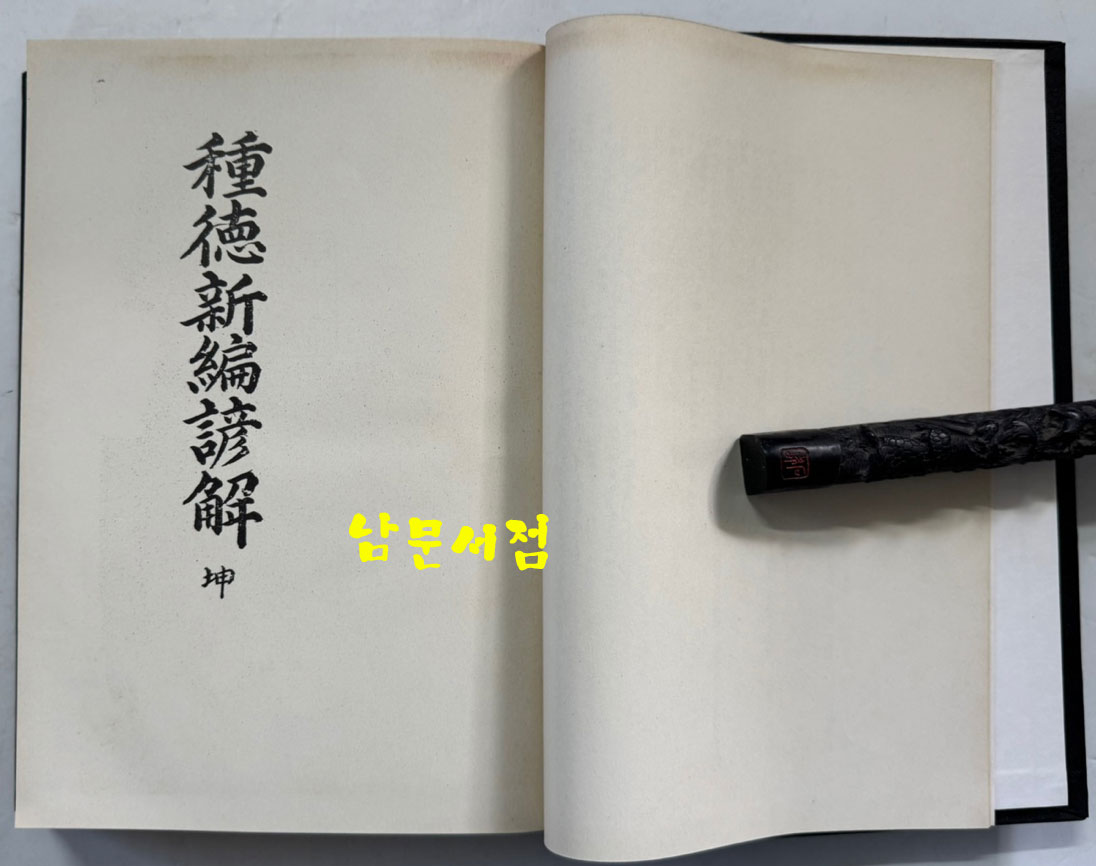 種徳新編諺解
坤
남문서점